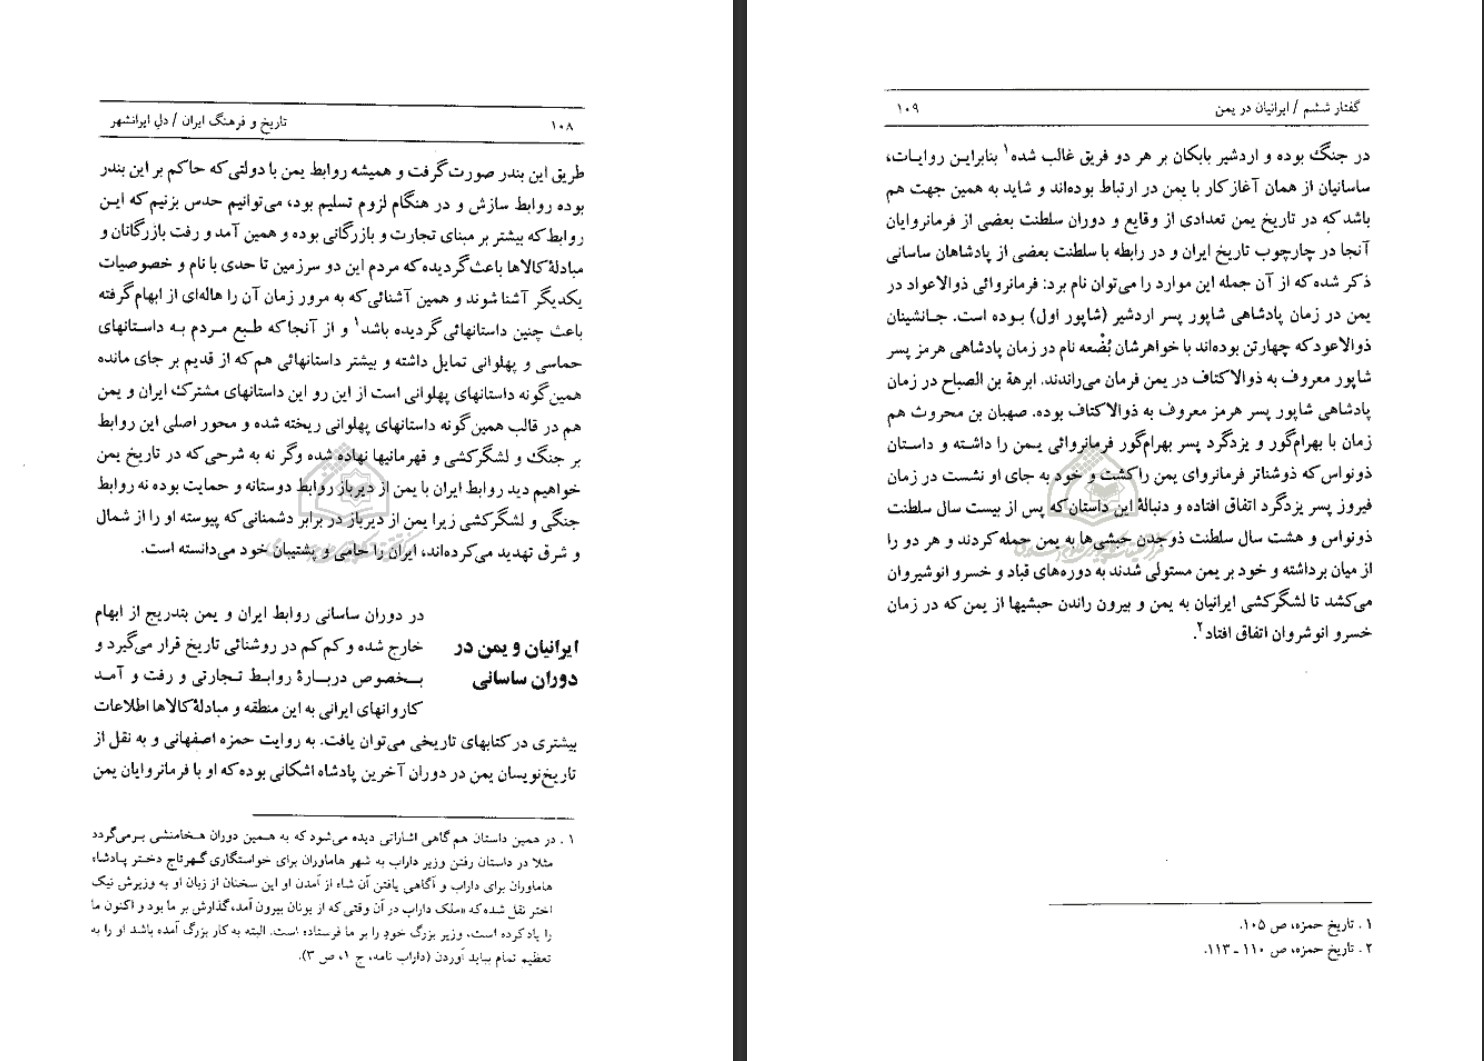 ۱۰۸ تاریخ و فرهنگ ایران / دل ایرانشهر
طریق این بندر صورت گرفت و همیشه روابط یمن با دولتی که حاکم بر این بندر
بوده روابط سازش و در هنگام لزوم تسلیم بود، می‌توانیم حدس بزنیم که این
روابط که بیشتر بر مبنای تجارت و بازرگانی بوده و همین آمد و رفت بازرگانان و
مبادلهٔ کالاها باعث گردیده که مردم این دو سرزمین تا حدی با نام و خصوصیات
یکدیگر آشنا شوند و همین آشنائی که به مرور زمان آن را هاله‌ای از ابهام گرفته
باعث چنین داستانهائی گردیده باشد۱ و از آنجا که طبع مردم به داستانهای
حماسی و پهلوانی تمایل داشته و بیشتر داستانهائی هم که از قدیم بر جای مانده
همین گونه داستانهای پهلوانی است از این رو این داستانهای مشترك ایران و یمن
هم در قالب همین گونه داستانهای پهلوانی ریخته شده و محور اصلی این روابط
بر جنگ و لشگرکشی و قهرمانیها نهاده شده وگر نه به شرحی که در تاریخ یمن
خواهیم دید روابط ایران با یمن از دیرباز روابط دوستانه و حمایت بوده نه روابط
جنگی و لشگرکشی زیرا یمن از دیرباز در برابر دشمنانی که پیوسته او را از شمال
و شرق تهدید می‌کرده‌اند، ایران را حامی و پشتیبان خود می‌دانسته است.
ایرانیان و یمن در
دوران ساسانی
در دوران ساسانی روابط ایران و یمن بتدریج از ابهام
خارج شده و کم کم در روشنائی تاریخ قرار می‌گیرد و
بـخصوص دربـارهٔ روابـط تـجارتی و رفت و آمـد
کاروانهای ایرانی به این منطقه و مبادلهٔ کالاها اطلاعات
بیشتری در کتابهای تاریخی می‌توان یافت. به روایت حمزه اصفهانی و به نقل از
تاریخ‌نویسان یمن در دوران آخرین پادشاه اشکانی بوده که او با فرمانروایان یمن
۱. در همین داستان هم گاهی اشاراتی دیده می‌شود که به همین دوران هخامنشی برمی‌گردد
مثلا در داستان رفتن وزیر داراب به شهر هاماوران برای خواستگاری گهرتاج دختر پادشاه
هاماوران برای داراب و آگاهی یافتن آن شاه از آمدن او این سخنان از زبان او به وزیرش نیک
اختر نقل شده که «ملک داراب در آن وقتی که از یونان بیرون آمد، گذارش بر ما بود و اکنون ما
را یاد کرده است، وزیر بزرگ خود را بر ما فرستاده است. البته به کار بزرگ آمده باشد او را به
تعظیم تمام بباید آوردن (داراب نامه، ج ۱، ص ۳).
گفتار ششم / ایرانیان در یمن ۱۰۹
در جنگ بوده و اردشیر بابکان بر هر دو فریق غالب شده۱ بنابراین روایات،
ساسانیان از همان آغاز کار با یمن در ارتباط بوده‌اند و شاید به همین جهت هم
باشد که در تاریخ یمن تعدادی از وقایع و دوران سلطنت بعضی از فرمانروایان
آنجا در چارچوب تاریخ ایران و در رابطه با سلطنت بعضی از پادشاهان ساسانی
ذکر شده که از آن جمله این موارد را می‌توان نام برد: فرمانروائی ذوالاعواد در
یمن در زمان پادشاهی شاپور پسر اردشیر (شاپور اول) بوده است. جانشینان
ذوالاعود که چهارتن بوده‌اند با خواهرشان بُضْعه نام در زمان پادشاهی هرمز پسر
شاپور معروف به ذوالاکتاف در یمن فرمان می‌راندند. ابرهة بن الصباح در زمان
پادشاهی شاپور پسر هرمز معروف به ذوالاکتاف بوده. صهبان بن محروث هم
زمان با بهرام‌گور و یزدگرد پسر بهرام‌گور فرمانروائی یمن را داشته و داستان
ذونواس که ذوشناتر فرمانروای یمن را کشت و خود به جای او نشست در زمان
فیروز پسر یزدگرد اتفاق افتاده و دنبالهٔ این داستان که پس از بیست سال سلطنت
ذونواس و هشت سال سلطنت ذوجدن حبشی‌ها به یمن حمله کردند و هر دو را
از میان برداشته و خود بر یمن مستولی شدند به دوره‌های قباد و خسرو انوشیروان
می‌کشد تا لشگرکشی ایرانیان به یمن و بیرون راندن حبشیها از یمن که در زمان
خسرو انوشروان اتفاق افتاد۲.
۱. تاریخ حمزه، ص ۱۰۵.
۲. تاریخ حمزه، ص ۱۱۰ ـ ۱۱۳.